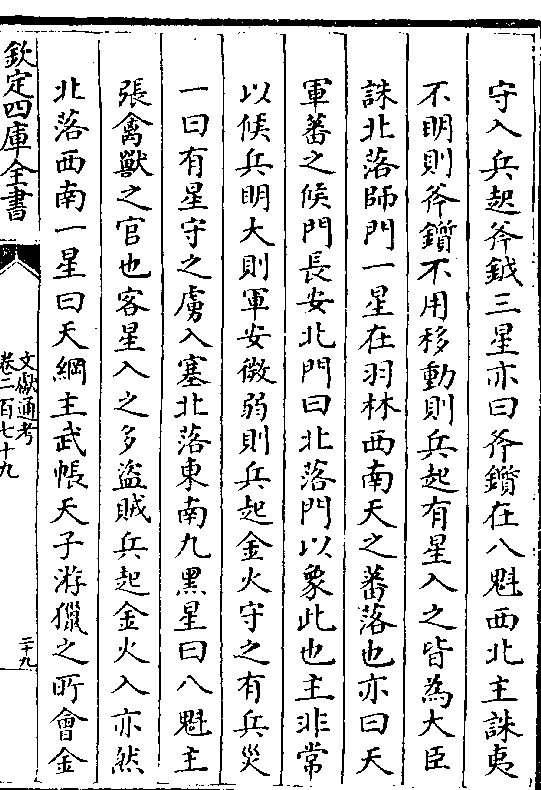 守入兵起斧鉞三星亦曰斧鑕在八魁西北主誅夷
不明則斧鑕不用移動則兵起有星入之皆為大臣
誅北落師門一星在羽林西南天之蕃落也亦曰天
軍蕃之候門長安北門曰北落門以象此也主非常
以候兵明大則軍安微弱則兵起金火守之有兵災
一曰有星守之虜入塞北落東南九黑星曰八魁主
張禽獸之官也客星入之多盜賊兵起金火入亦然
北落西南一星曰天綱主武帳天子游獵之所會金
欽定四庫全書
文獻通考
卷二百七十九
二十九